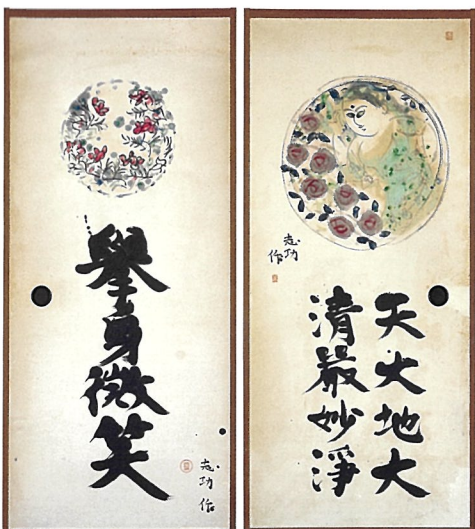 天大地大
清嚴妙淨
志功
作
擧身微笑
志功作